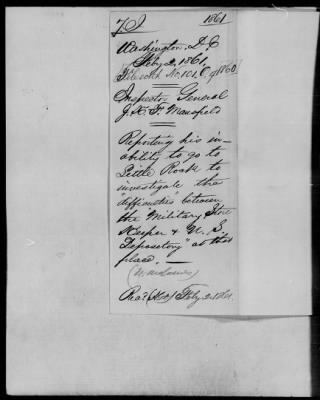 1861
Washington, D.C.
Feby 2, 1861.
Inspector General
J. K. F. Mansfield
Reporting his in-
ability to go to
Little Rock to
investigate the
"difficulties" between
the "Military Store
Keeper & U. S.
Depository" at that
place. —
Feby 2. 1861.